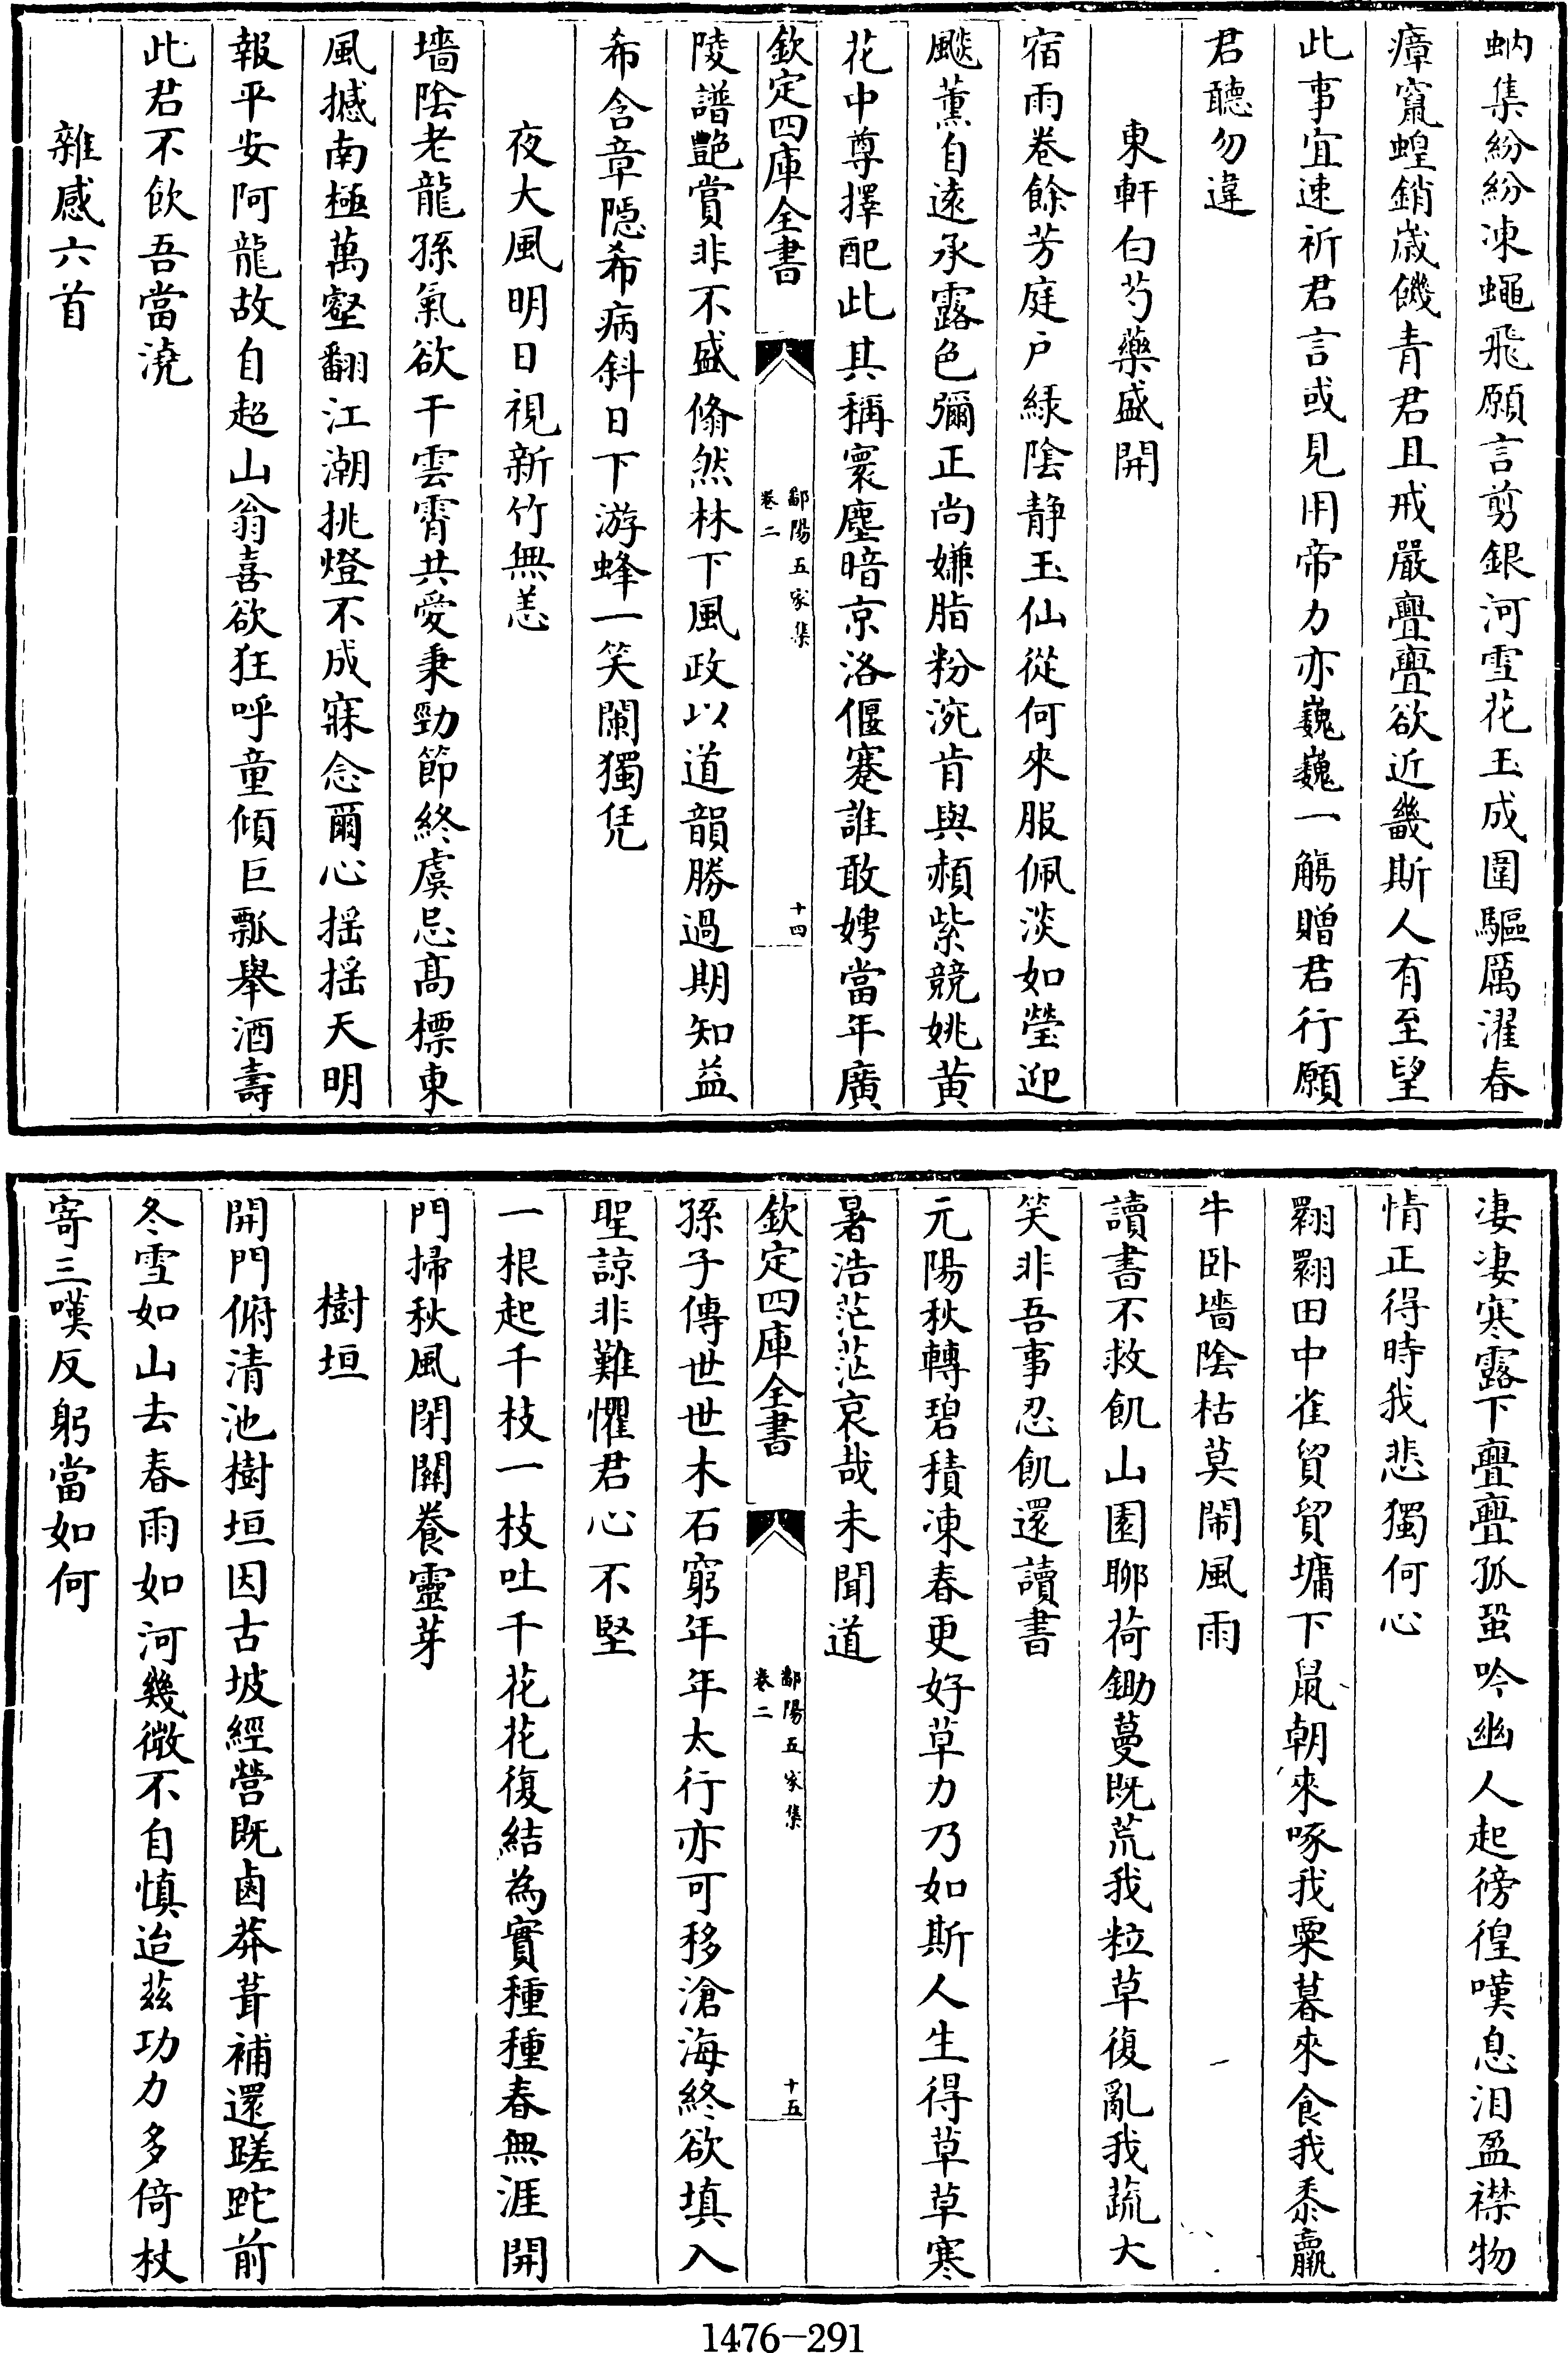 蚋集紛紛凍蠅飛願言剪銀河雪花玉成圍驅厲濯春
瘴竄蝗銷歳饑青君且戒嚴亹亹欲近畿斯人有至望
此事宜速祈君言或見用帝力亦巍巍一觴贈君行願
君聽勿違
東軒白芍藥盛開
宿雨卷餘芳庭户緑陰静玉仙從何來服佩淡如瑩迎
颷薰自逺承露色彌正尚嫌脂粉涴肯與赬紫競姚黄
花中尊擇配此其稱寰塵暗京洛偃蹇誰敢娉當年廣
欽定四庫全書
鄱陽五家集
卷二
十四
陵譜艶賞非不盛翛然林下風政以道韻勝過期知益
希含章隠希病斜日下游蜂一笑闌獨凭
夜大風明日視新竹無恙
墻陰老龍孫氣欲干雲霄共愛秉勁節終虞忌髙標東
風撼南極萬壑翻江潮挑燈不成寐念爾心揺揺天明
報平安阿龍故自超山翁喜欲狂呼童傾巨瓢舉酒壽
此君不飲吾當澆
雜感六首
凄凄寒露下亹亹孤蛩吟幽人起徬徨嘆息泪盈襟物
情正得時我悲獨何心
翾翾田中雀貿貿墉下鼠朝來啄我粟暮來食我黍羸
牛卧墻陰枯莫閙風雨
讀書不救飢山園聊荷鋤蔓既荒我粒草復亂我蔬大
笑非吾事忍飢還讀書
元陽秋轉碧積凍春更好草力乃如斯人生得草草寒
暑浩茫茫哀哉未聞道
欽定四庫全書
鄱陽五家集
卷二
十五
孫子傳世世木石窮年年太行亦可移滄海終欲填入
聖諒非難懼君心不堅
一根起千枝一枝吐千花花復結為實種種春無涯開
門掃秋風閉關養靈芽
樹垣
開門俯清池樹垣因古坡經營既鹵莽葺補還蹉跎前
冬雪如山去春雨如河幾微不自慎迨茲功力多倚杖
寄三嘆反躬當如何
1476-291